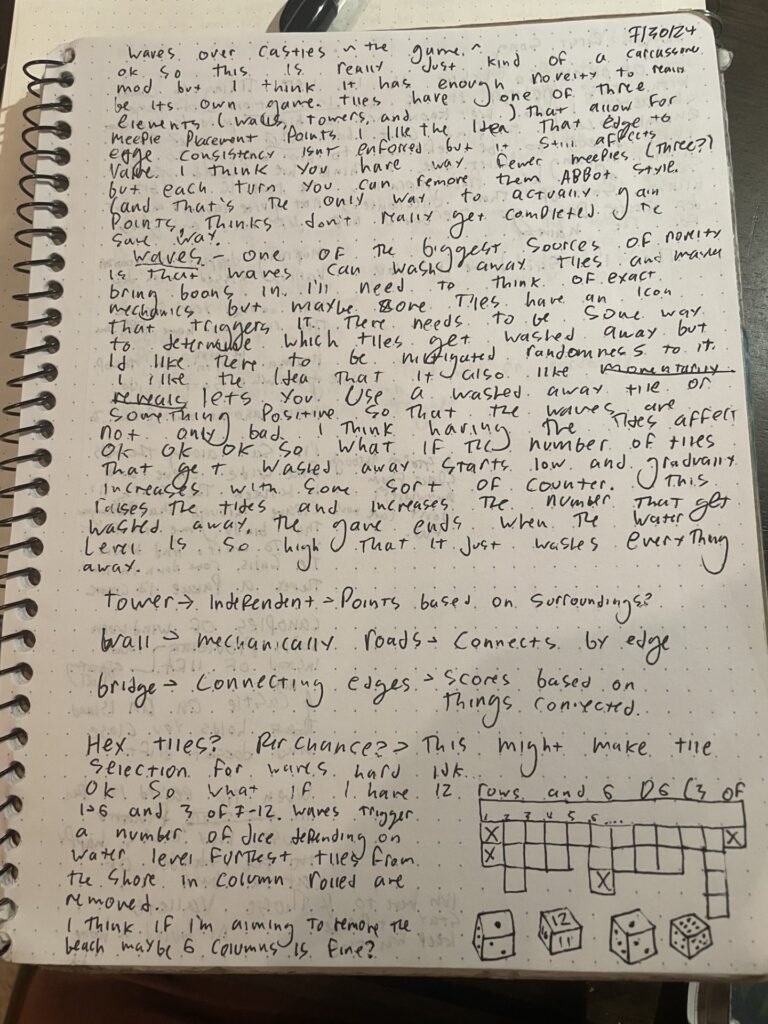 7/30/24
Waves over Castles ~ the game. ~
ok so this is really just kind of a carcassonne
mod but I think it has enough novelty to really
be its own game. tiles have one of three
elements (walls, towers, and          ) that allow for
meeple placement Points I like the idea that edge to
edge consistency isnt enforced but it still affects
value. I think you have way fewer meeples (three?)
but each turn you can remove them ABBot style.
(and that's the only way to actually gain
Points, Thinks don't really get completed the
same way.
Waves - one of the biggest sources of novelty
is that waves can wash away tiles and maybe
bring boons in. I'll need to think of exact
mechanics but maybe some Tiles have an icon
that triggers it. There needs to be some way
to determine which tiles get washed away but
Id like there to be mitigated randomness to it.
I like the idea that it also like momentarily
reveals lets you use a washed away tile or
something positive so that the waves are
not only bad. I think having the tides affect
OK OK OK so what if the number of tiles
that get washed away starts low and gradually
increases with some sort of counter. This
raises the tides and increases the number that get
washed away, the gave ends when the water
level is so high that it just washes everything
away.
tower → Independent → Points based on surroundings?
wall → mechanically roads → Connects by edge
bridge → Connecting edges → Scores based on
things connected.
Hex tiles? Perchance? → This might make tile
selection for waves hard idk.
Ok so what if I have 12 rows and 6 D6 (3 of
1-6 and 3 of 7-12. Waves trigger
a number of dice depending on
water level furthest tiles from
the shore in column rolled are
removed.
I think if I'm aiming to remove the
beach maybe 6 columns is fine?
1 2 3 4 5 6 ....
X X
X
X
12
11